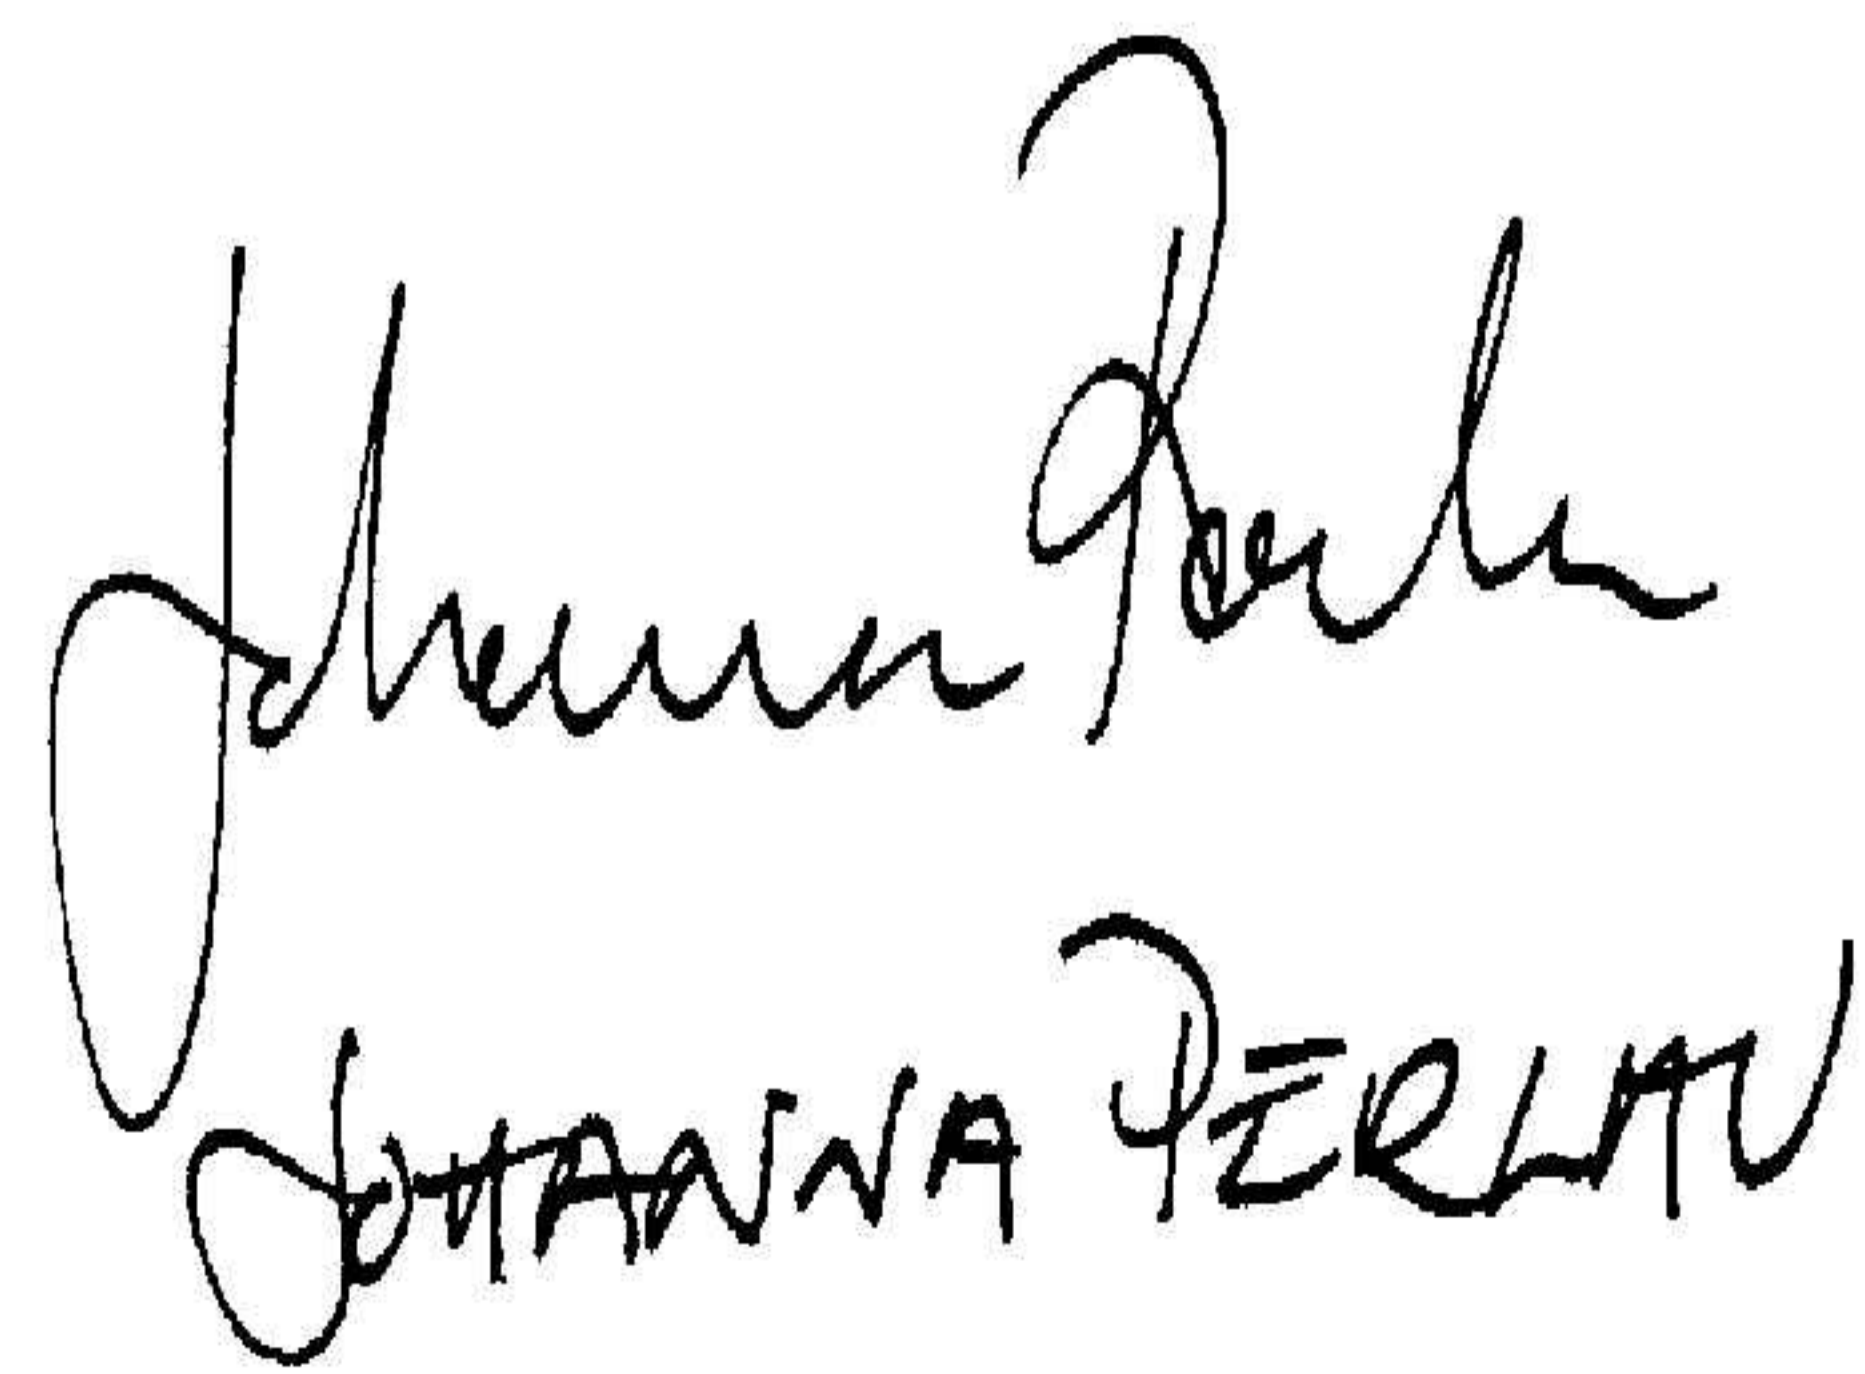 Johanna Perla
JOHANNA PERLAU